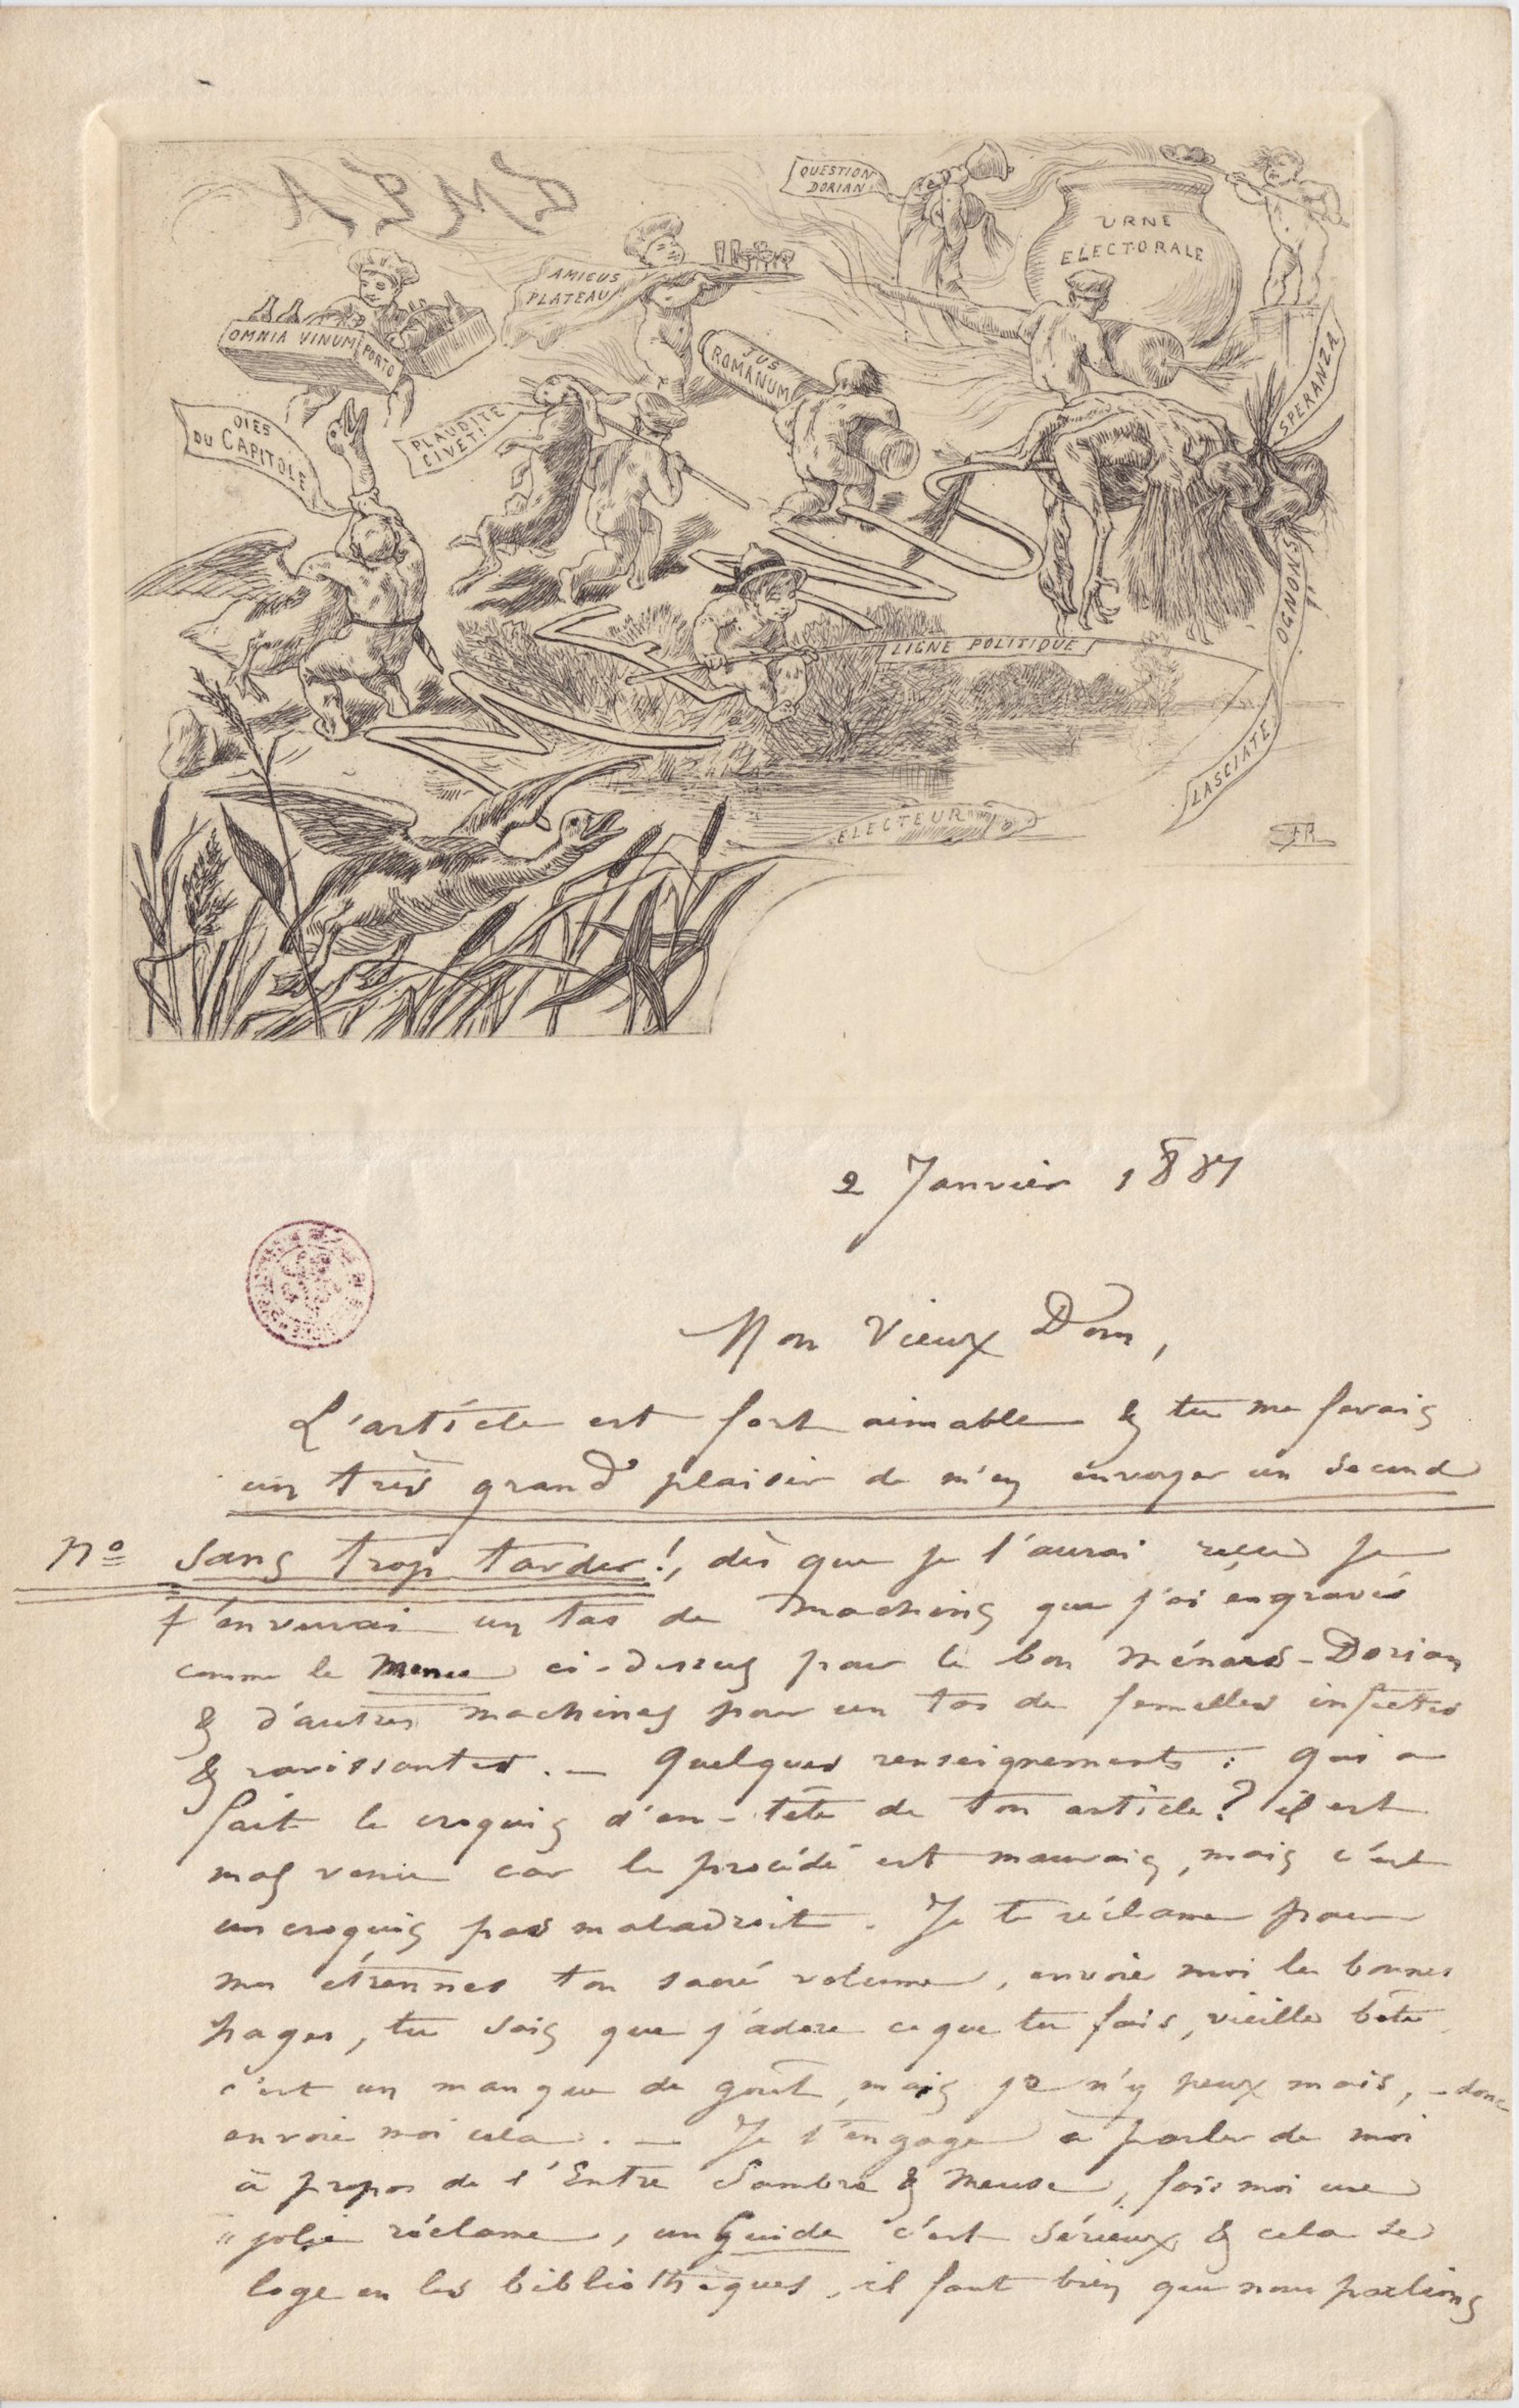 QUESTION
DORIAN
URNE
ELECTORALE
AMICUS
PLATEAU
OMNIA VINUM PORTO
JUS
ROMANUM
OIES
DU CAPITOLE
PLAUDITE
CIVET!
SPERANZA
OGNONS
LASCIATE
LIGNE POLITIQUE
ELECTEUR
FR
2 Janvier 1887
Mon Vieux Dom,
L'article est fort aimable & tu me ferais
un très grand plaisir de m'en envoyer un second
No sans trop tarder!, dès que je l'aurai reçu je
t'enverrai un tas de machins que j'ai engravés
comme le menu ci-dessus pour le bon Ménard-Dorian
& d'autres machines pour un tas de femelles infectes
& ravissantes. — Quelques renseignements : qui a
fait le croquis d'en-tête de ton article? il est
mal venu car le procédé est mauvais, mais c'est
un croquis pas maladroit. Je te réclame pour
mes étrennes ton sacré volume, envoie moi les bonnes
pages, tu sais que j'adore ce que tu fais, vieille bête
c'est un manque de goût, mais je n'y peux mais, - donc
envoie moi cela. — Je t'engage à parler de moi
à propos de l'Entre Sambre & Meuse, fais moi une
jolie réclame, un Guide c'est sérieux & cela se
loge en les bibliothèques, il faut bien que nous parlions